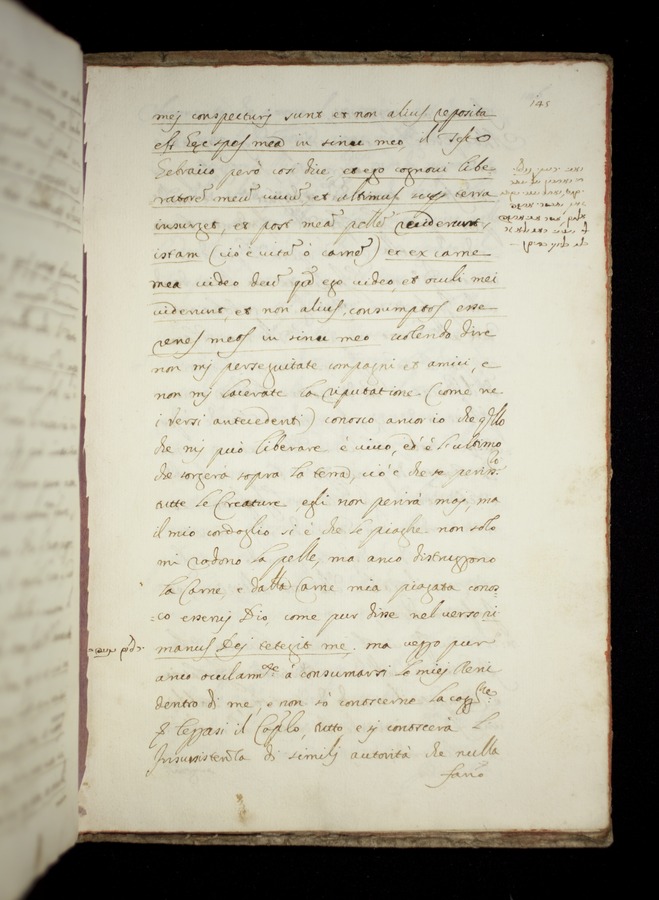 145
mej conspecturj sunt et non alius reposita
est hec spes mea in sinu meo, il testo
Ebraico però così dice et ego cognovi libe-
ratorē meū vivū et ultimus super terrā
insurget, et post meā pellē
istam (cio è vitā ò carnē) et ex carne
mea video deū quē ego video, et oculi mei
viderunt, et non alius, consumptos esse
renes meos in sinu meo volendo dire
non mi perseguitate compagni et amici, e
non mi lacerate la riputatione (come ne
i versi antecedenti) conosco ancor io che qllo
che mi può liberare è vivo, ed è l'ultimo
che sorgerà sopra la terra, cio è che se
tutte le Creature egli non perirà mai, ma
il mio cordoglio si è che le piaghe non solo
mi rodono la pelle, ma anco distruggono
la Carne e dalla Carne mia piagata conos=
=co esservi Dio, come pur disse nel verso
manus Dej tetegit me. ma veggo pur
anco a consumarsi le miej Reni
dentro di me, e non sò conoscerne la
legasi il tutto e si conoscerà l'
Insussistenza di similj autorità che nulla
fanno